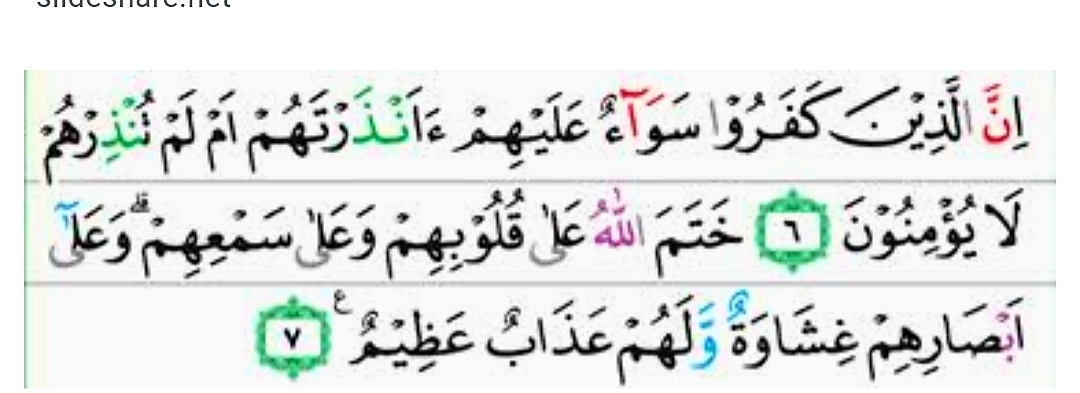 slideshare.net
اِنَّ الَّذِيْنَ كَفَرُوْا سَوَآءٌ عَلَيْهِمْ ءَاَنْذَرْتَهُمْ اَمْ لَمْ تُنْذِرْهُمْ
لَا يُؤْمِنُوْنَ ٦ خَتَمَ اللّٰهُ عَلٰى قُلُوْبِهِمْ وَعَلٰى سَمْعِهِمْ ۗ وَعَلٰٓى
اَبْصَارِهِمْ غِشَاوَةٌ وَّلَهُمْ عَذَابٌ عَظِيْمٌ ࣖ ٧